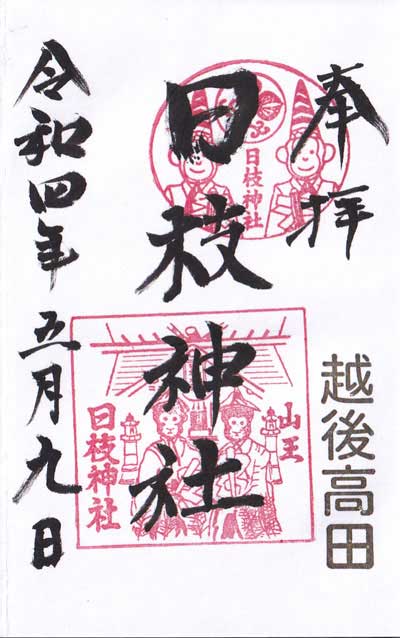 奉拝
越後高田
日枝神社
日枝神社
山王
日枝神社
令和四年五月九日